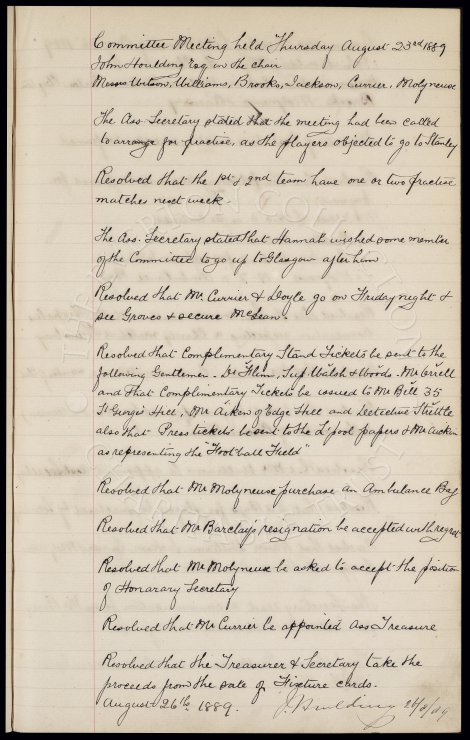 Committee Meeting held Thursday August 23rd 1889
John Houlding Esq in the chair
Messrs Wilson, Williams, Brooks, Jackson, Currier, Molyneuse
The Ass. Secretary stated that the meeting had been called
to arrange for practise, as the players objected to go to Stanley
Resolved that the 1st & 2nd team have one or two practise
matches next week.
The Ass. Secretary stated that Hannah wished some member
of the Committee to go up to Glasgow after him
Resolved that Mr Currier & Doyle go on Friday night &
see Groves & secure McLean.
Resolved that Complimentary Stand Tickets be sent to the
following Gentlemen. Dr Sup Walsh & Woods. Mr
and that Complimentary Tickets be issued to Mr Bell 35
St Georges Hill, Mr Aiken of Edge Hill and Detective
also that Press tickets be sent to the L'pool papers & Mr Aicken
as representing the "Football Field"
Resolved that Mr Molyneuse purchase an Ambulance Bag
Resolved that Mr Barclay's resignation be accepted with regret
Resolved that Mr Molyneuse be asked to accept the position
of Honarary Secretary
Resolved that Mr Currier be appointed Ass Treasure
Resolved that the Treasurer & Secretary take the
proceeds from the sale of Fixture cards.
August 26th 1889. J. Houlding 26/8/89